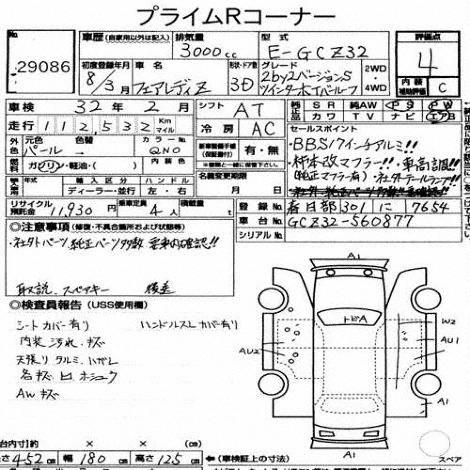 プライムRコーナー
29086
車歴 (自家用以外は記入) 排気量 3000cc 型式 E-GCZ32 評価点 4
初度登録年月 8/3月 車名 フェアレディZ ドア・形状 3D グレード 2by2バージョンS 2WD
ツインターボTバールーフ 4WD 内装 補助評価 C
車検 32年 2月 シフト AT
SR 純AW PS PW
カワ TV ナビ エアB
走行 112,532 Km マイル 冷房 AC
セールスポイント
元色 色 パール カラーNo QNO
新車整備手帳(保証書) 有・無
・BBS17インチアルミ!!
・柿本改マフラー!!・車高調!!
(純正マフラー有)・社外テールランプ!!
燃料 ガソリン・軽油・( ) 内装色
名義変更期限 月 日
輸入区分 ハンドル
ディーラー・並行 左・右
リサイクル預託金 11,930円 乗車定員 4人 積載量
登録No 春日部 301 に 7654
車台No GCZ32-560877
シリアルNo
◎注意事項 (修復・不具合箇所および状態等)
・社外パーツ純正パーツ多数 車内確認!!
取説、スペアキー 後送
◎検査員報告 (USS使用欄)
シートカバー有り ハンドルスレ カバー有り
内装 汚れ、キズ
天張り タルミ、ハガレ
AW キズ
A1
W2
AU2
AU1
A1
A1
スペア
台内寸 × ×
長さ 452 cm 幅 180 cm 高さ 125 cm ←(車検証上の寸法)